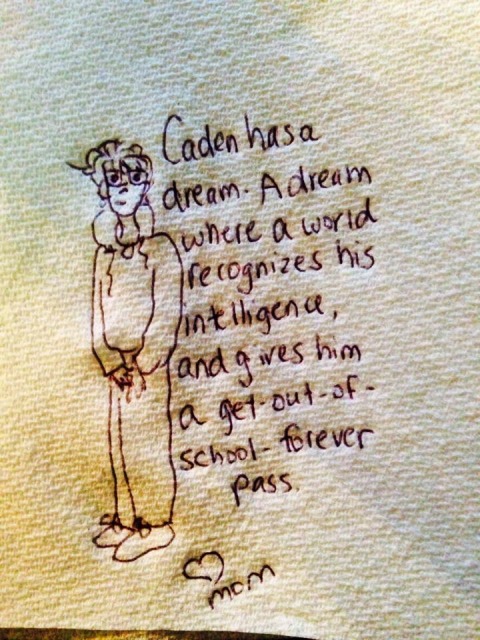 Caden has a
dream. A dream
where a world
recognizes his
intelligence,
and gives him
a get-out-of-
school-forever
pass.
mom